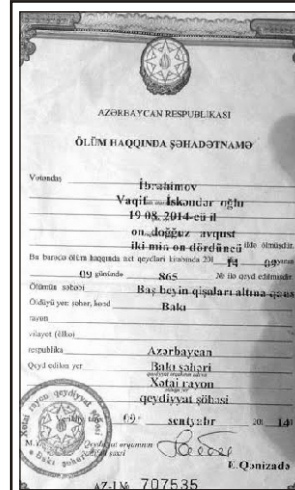 AZƏRBAYCAN RESPUBLIKASI
ÖLÜM HAQQINDA ŞƏHADƏTNAMƏ
Vətəndaş
İbrahimov
Vaqif İskəndər oğlu
19 08. 2014-cü il
on doğğuz avqust
iki min on dördüncü ildə ölmüşdür.
Bu barədə ölüm haqqında akt qeydləri kitabında 201 14 09
09 günündə 865 № ilə qeyd edilmişdir.
Ölümün səbəbi Baş beyin qişaları altına
Öldüyü yer: şəhər, kənd Bakı
rayon
vilayət (ölkə)
respublika Azərbaycan
Qeyd edilən yer Bakı şəhəri
Xətai rayon
qeydiyyat şöbəsi
09 sentyabr 20 14
M.Y. Qeydiyyat orqanının
E.Qənizadə
AZ-I № 707535